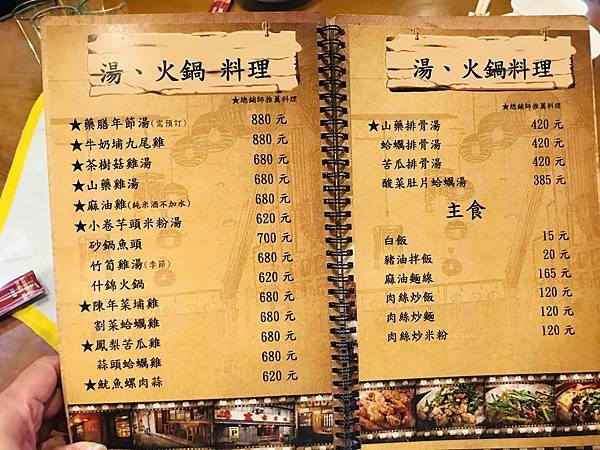 湯、火鍋 料理
★總鋪師推薦料理
★藥膳年節湯(需預訂) 880 元
★牛奶埔九尾雞 880 元
★茶樹菇雞湯 680 元
★山藥雞湯 680 元
★麻油雞(純米酒不加水) 680 元
★小卷芋頭米粉湯 620 元
砂鍋魚頭 700 元
竹筍雞湯(季節) 680 元
什錦火鍋 620 元
★陳年菜埔雞 680 元
割菜蛤蠣雞 680 元
★鳳梨苦瓜雞 680 元
蒜頭蛤蠣雞 680 元
★魷魚螺肉蒜 620 元
湯、火鍋料理
★總鋪師推薦料理
★山藥排骨湯 420 元
蛤蠣排骨湯 420 元
苦瓜排骨湯 420 元
酸菜肚片蛤蠣湯 385 元
主食
白飯 15 元
豬油拌飯 20 元
麻油麵線 165 元
肉絲炒飯 120 元
肉絲炒麵 120 元
肉絲炒米粉 120 元